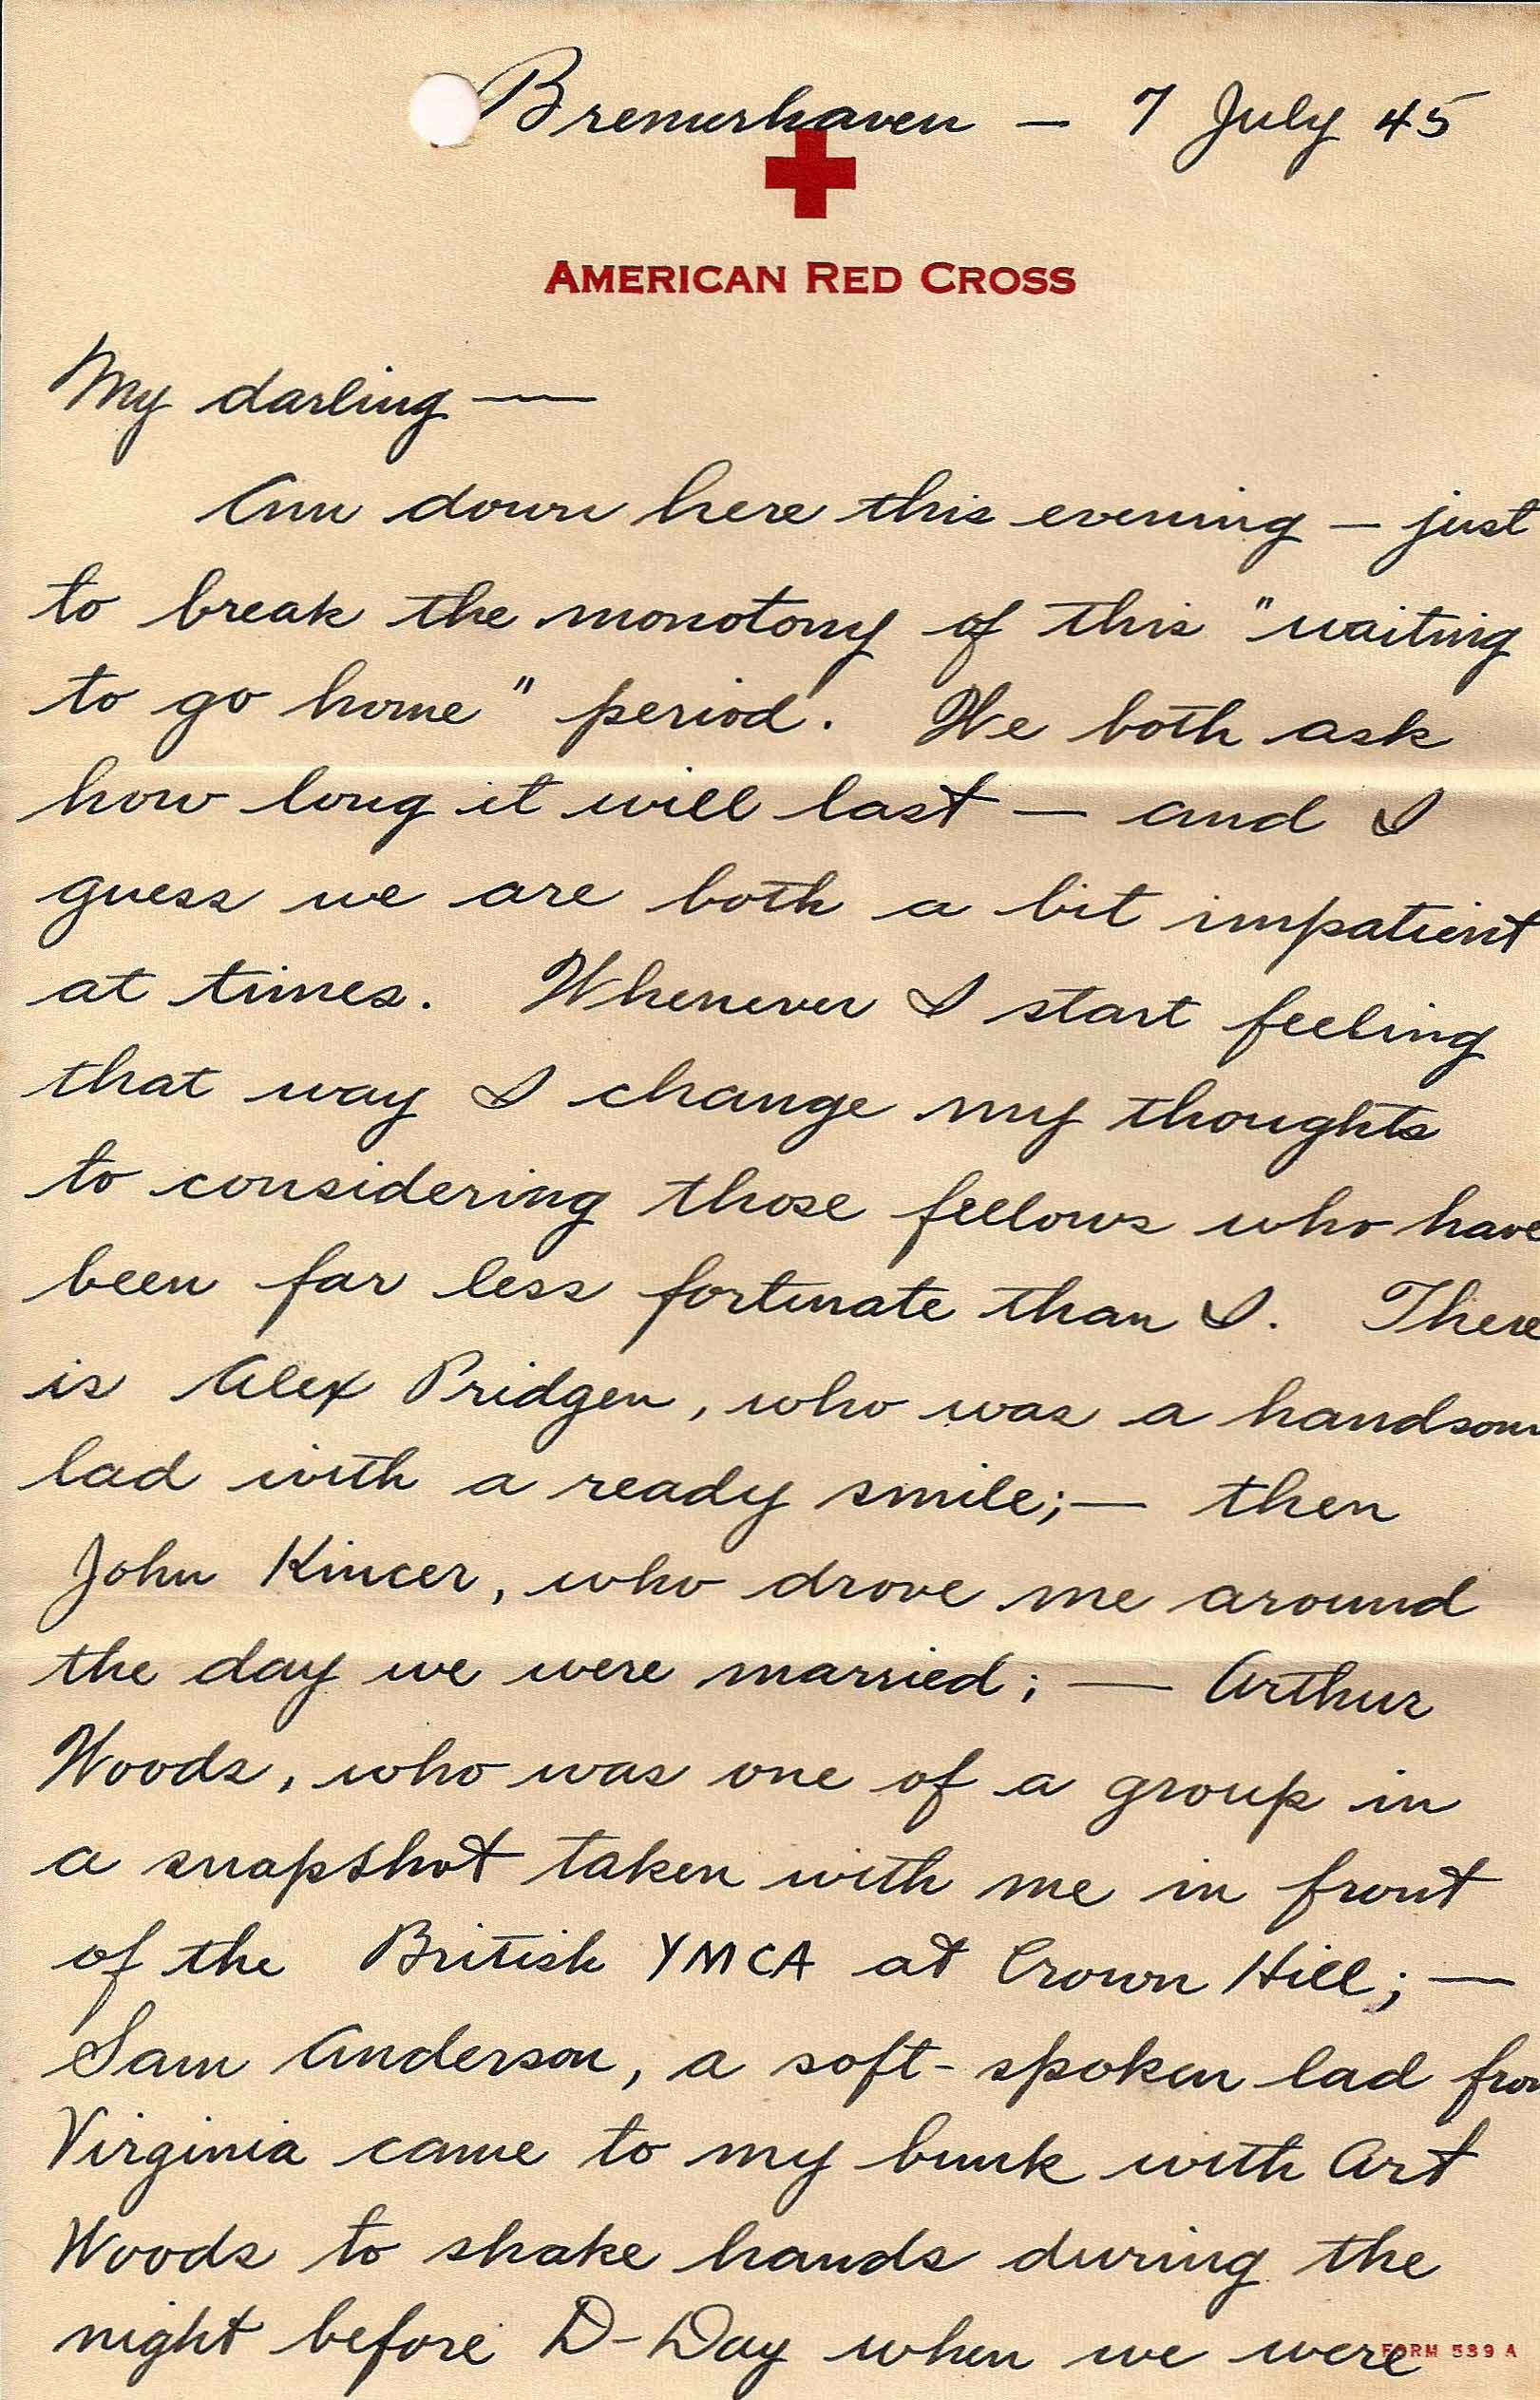 Bremerhaven — 7 July 45
AMERICAN RED CROSS
My darling —
Am down here this evening — just
to break the monotony of this "waiting
to go home" period. We both ask
how long it will last — and I
guess we are both a bit impatient
at times. Whenever I start feeling
that way I change my thoughts
to considering those fellows who have
been far less fortunate than I. There
is Alex Pridgen, who was a handsom
lad with a ready smile; — then
John Kincer, who drove me around
the day we were married; — Arthur
Woods, who was one of a group in
a snapshot taken with me in front
of the British YMCA at Crown Hill; —
Sam Anderson, a soft-spoken lad from
Virginia came to my bunk with Art
Woods to shake hands during the
night before D-Day when we were
FORM 539 A